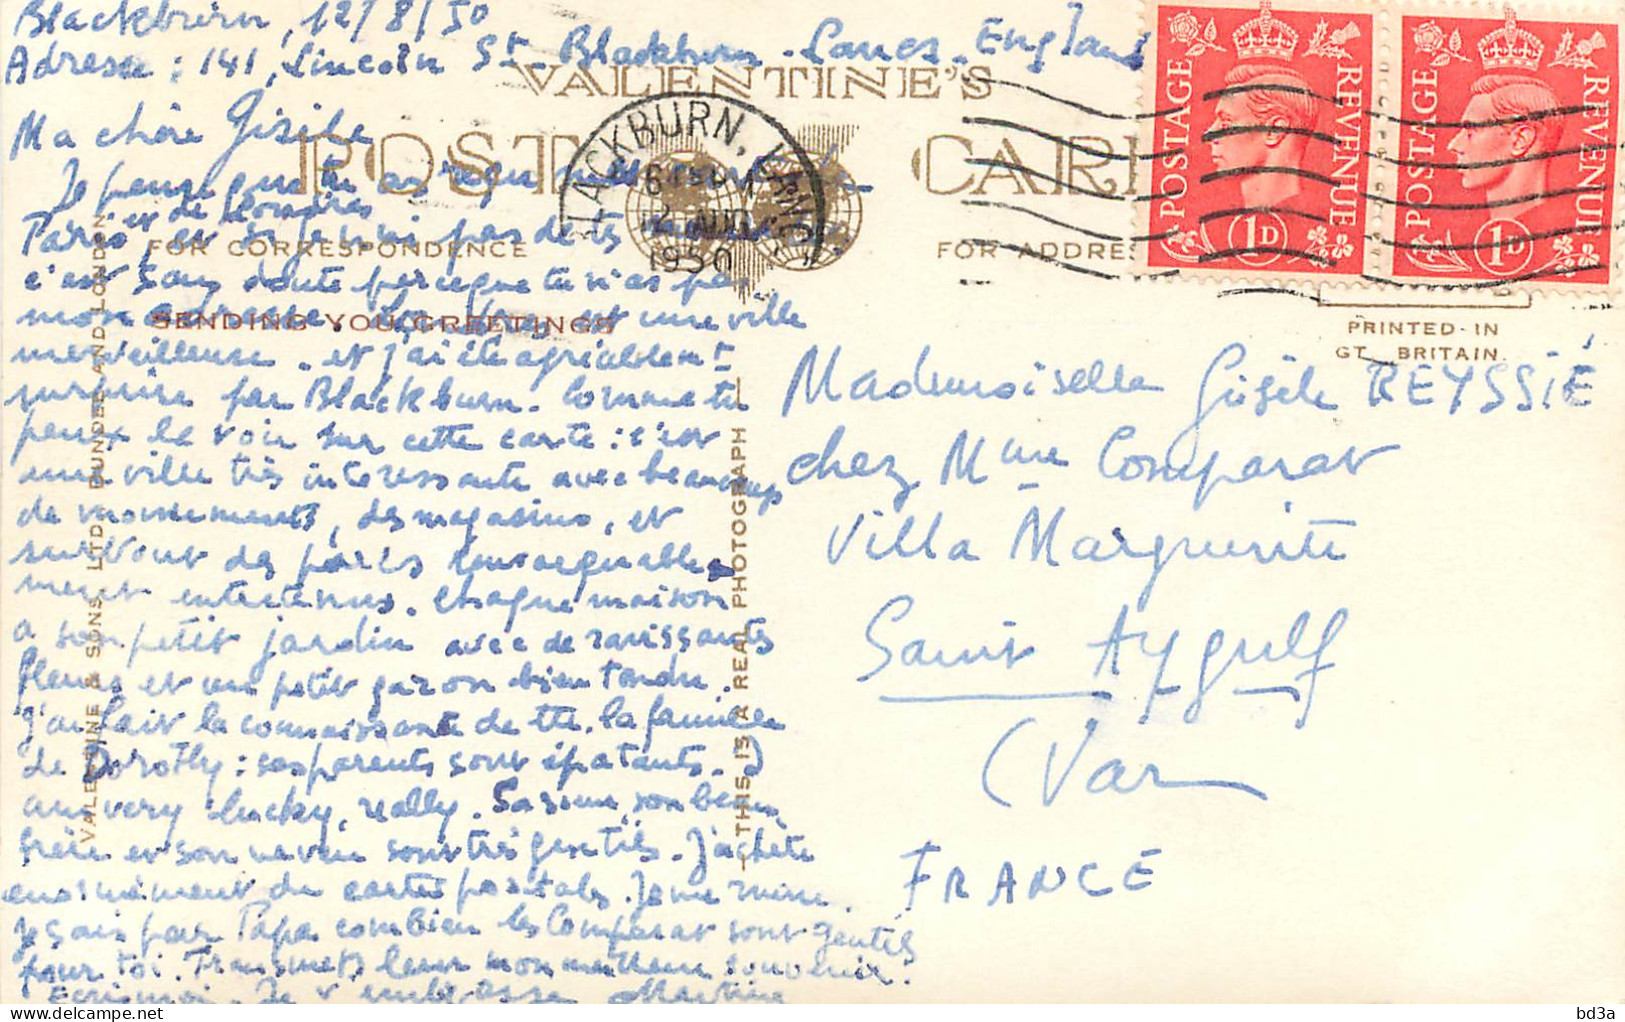 Blackburn, 12/8/50
Adresse : 141, Lincoln St - Blackburn - Lancs - England
VALENTINE'S
POST CARD
Ma chère Gisèle
Je pense que tu as reçu
et de Londres
Paris, et si je n'ai pas de tes
c'est sans doute parce que tu n'as pas
mon adresse. Londres est une ville
merveilleuse. et j'ai été agréablement
surprise par Blackburn. Comme tu
peux le voir sur cette carte : c'est
une ville très interessante avec beaucoup
de mouvements, des magasins, et
surtout des parcs remarquable-
ment entretenus. Chaque maison
a son petit jardin avec de ravissantes
fleurs et un petit gazon bien tondu.
J'ai fait la connaissance de tte la famille
de Dorothy : ses parents sont épatants. I
am very lucky, really. Sa sœur, son beau
frère et son neveu sont très gentils. J'achète
enormément de cartes postales. Je me ruine.
Je sais par Papa combien les Comparat sont gentils
pour toi. Transmets leur mon meilleur souvenir.
Ecris moi. Je t'embrasse Martine
FOR CORRESPONDENCE
SENDING YOU GREETINGS
VALENTINE & SONS, LTD. DUNDEE AND LONDON
THIS IS A REAL PHOTOGRAPH
BLACKBURN, LANCS
12 AUG
1950
FOR ADDRESS
POSTAGE REVENUE
1D
POSTAGE REVENUE
1D
PRINTED IN
GT. BRITAIN.
Mademoiselle Gisèle REYSSIÉ
chez Mme Comparat
Villa Marguerite
Saint Aygulf
(Var
FRANCE
bd3a